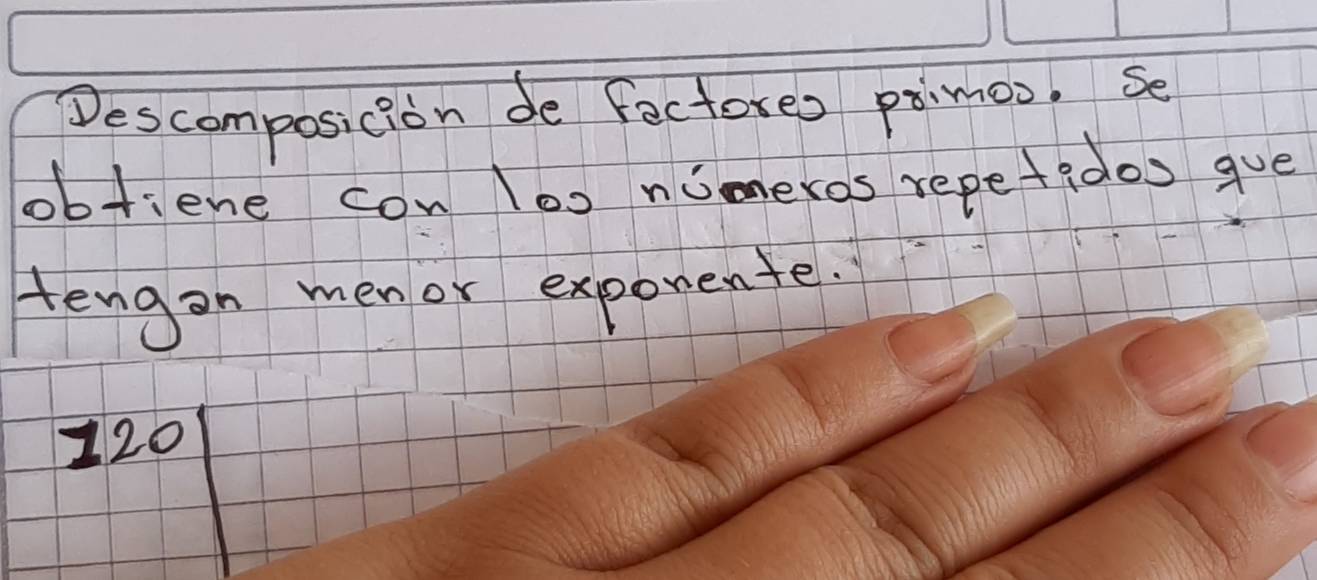 Descomposición de factores primos. Se
obtiene con los números repetidos que
tengan menor exponente.
120